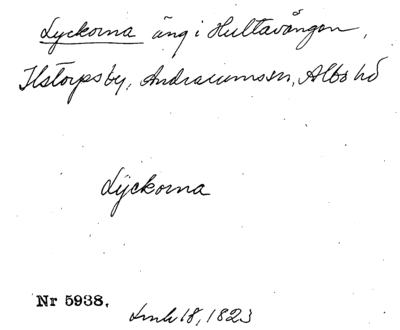 Lyckorna äng i Hultavången,
Ilstorps by, Andrarums sn, Albo hd
Lÿckorna
Nr 5938.
Lmh 18, 1823